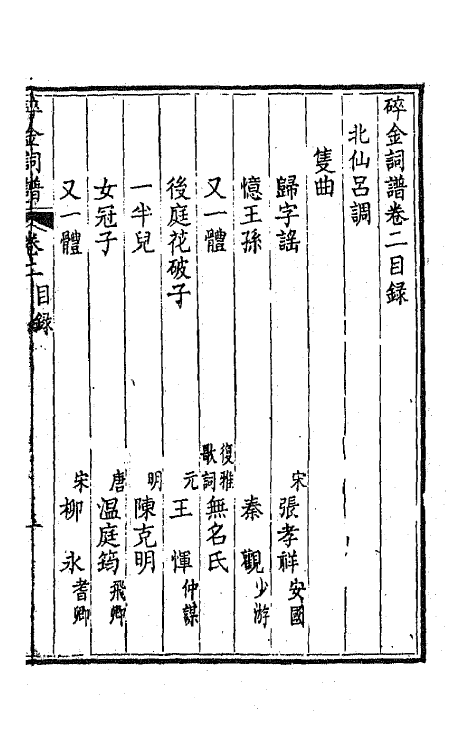 碎金詞譜卷二目録
北仙呂調
隻曲
歸字謠 宋 張孝祥 安國
憶王孫 秦觀 少游
又一體 復雅歌詞 無名氏
後庭花破子 元 王惲 仲謀
一半兒 明 陳克明
女冠子 唐 温庭筠 飛卿
又一體 宋 柳永 耆卿
碎金詞譜 卷二 目録 一